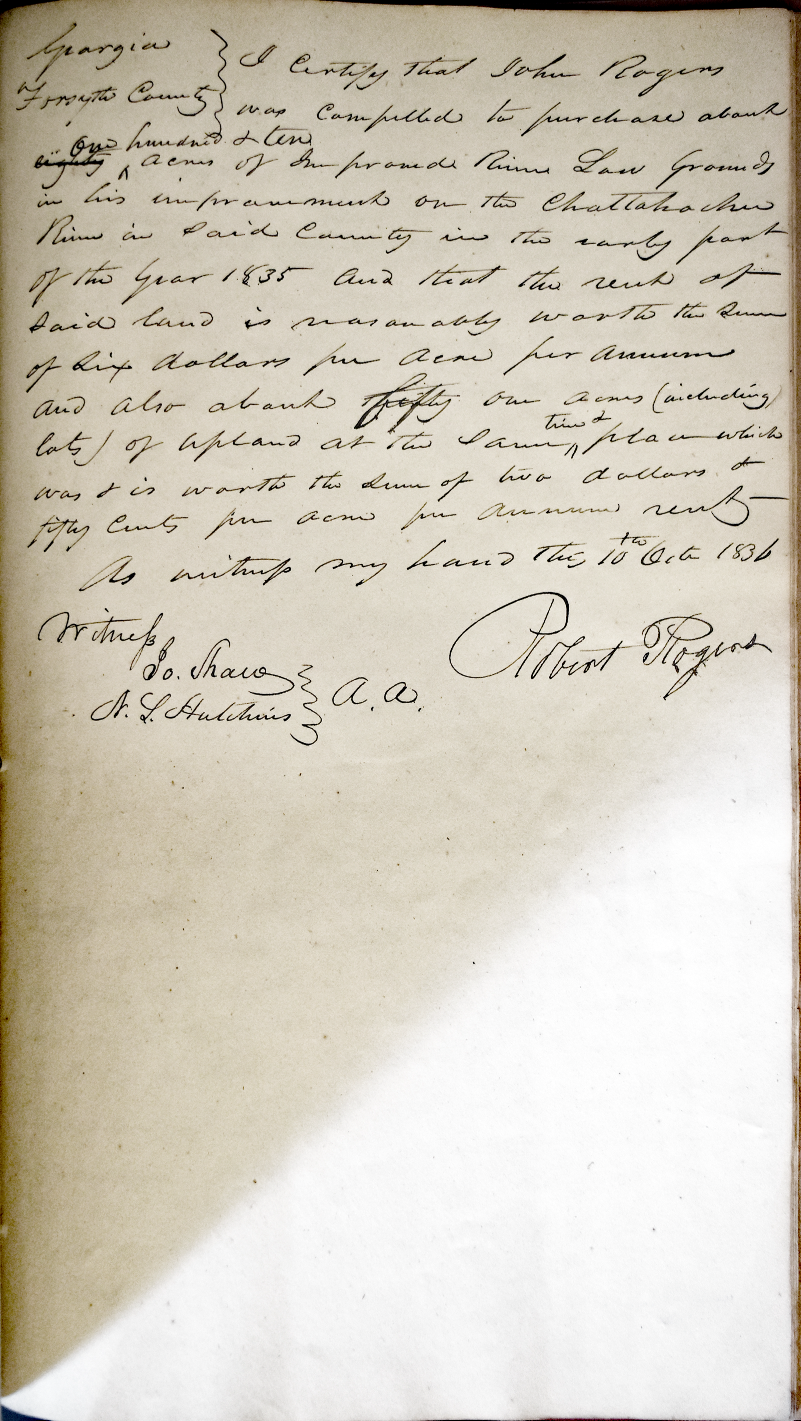 Georgia } I Certify that John Rogers
Forsyth County } was compelled to purchase about
One hundred & ten
eighty acres of Improved River Low Grounds
in his improvement on the Chattahochee
River in Said County in the early part
of the Year 1835 and that the rent of
Said land is reasonably worth the Sum
of Six dollars per acre per annum
and also about fifty one acres (including
lots) of upland at the Same time & place which
was & is worth the Sum of two dollars &
fifty Cents per acre per annum rent
As witness my hand this 10th Octr 1836
Witness
Robert Rogers
Jo. Shaw } A. A.
N. L. Hutchins }